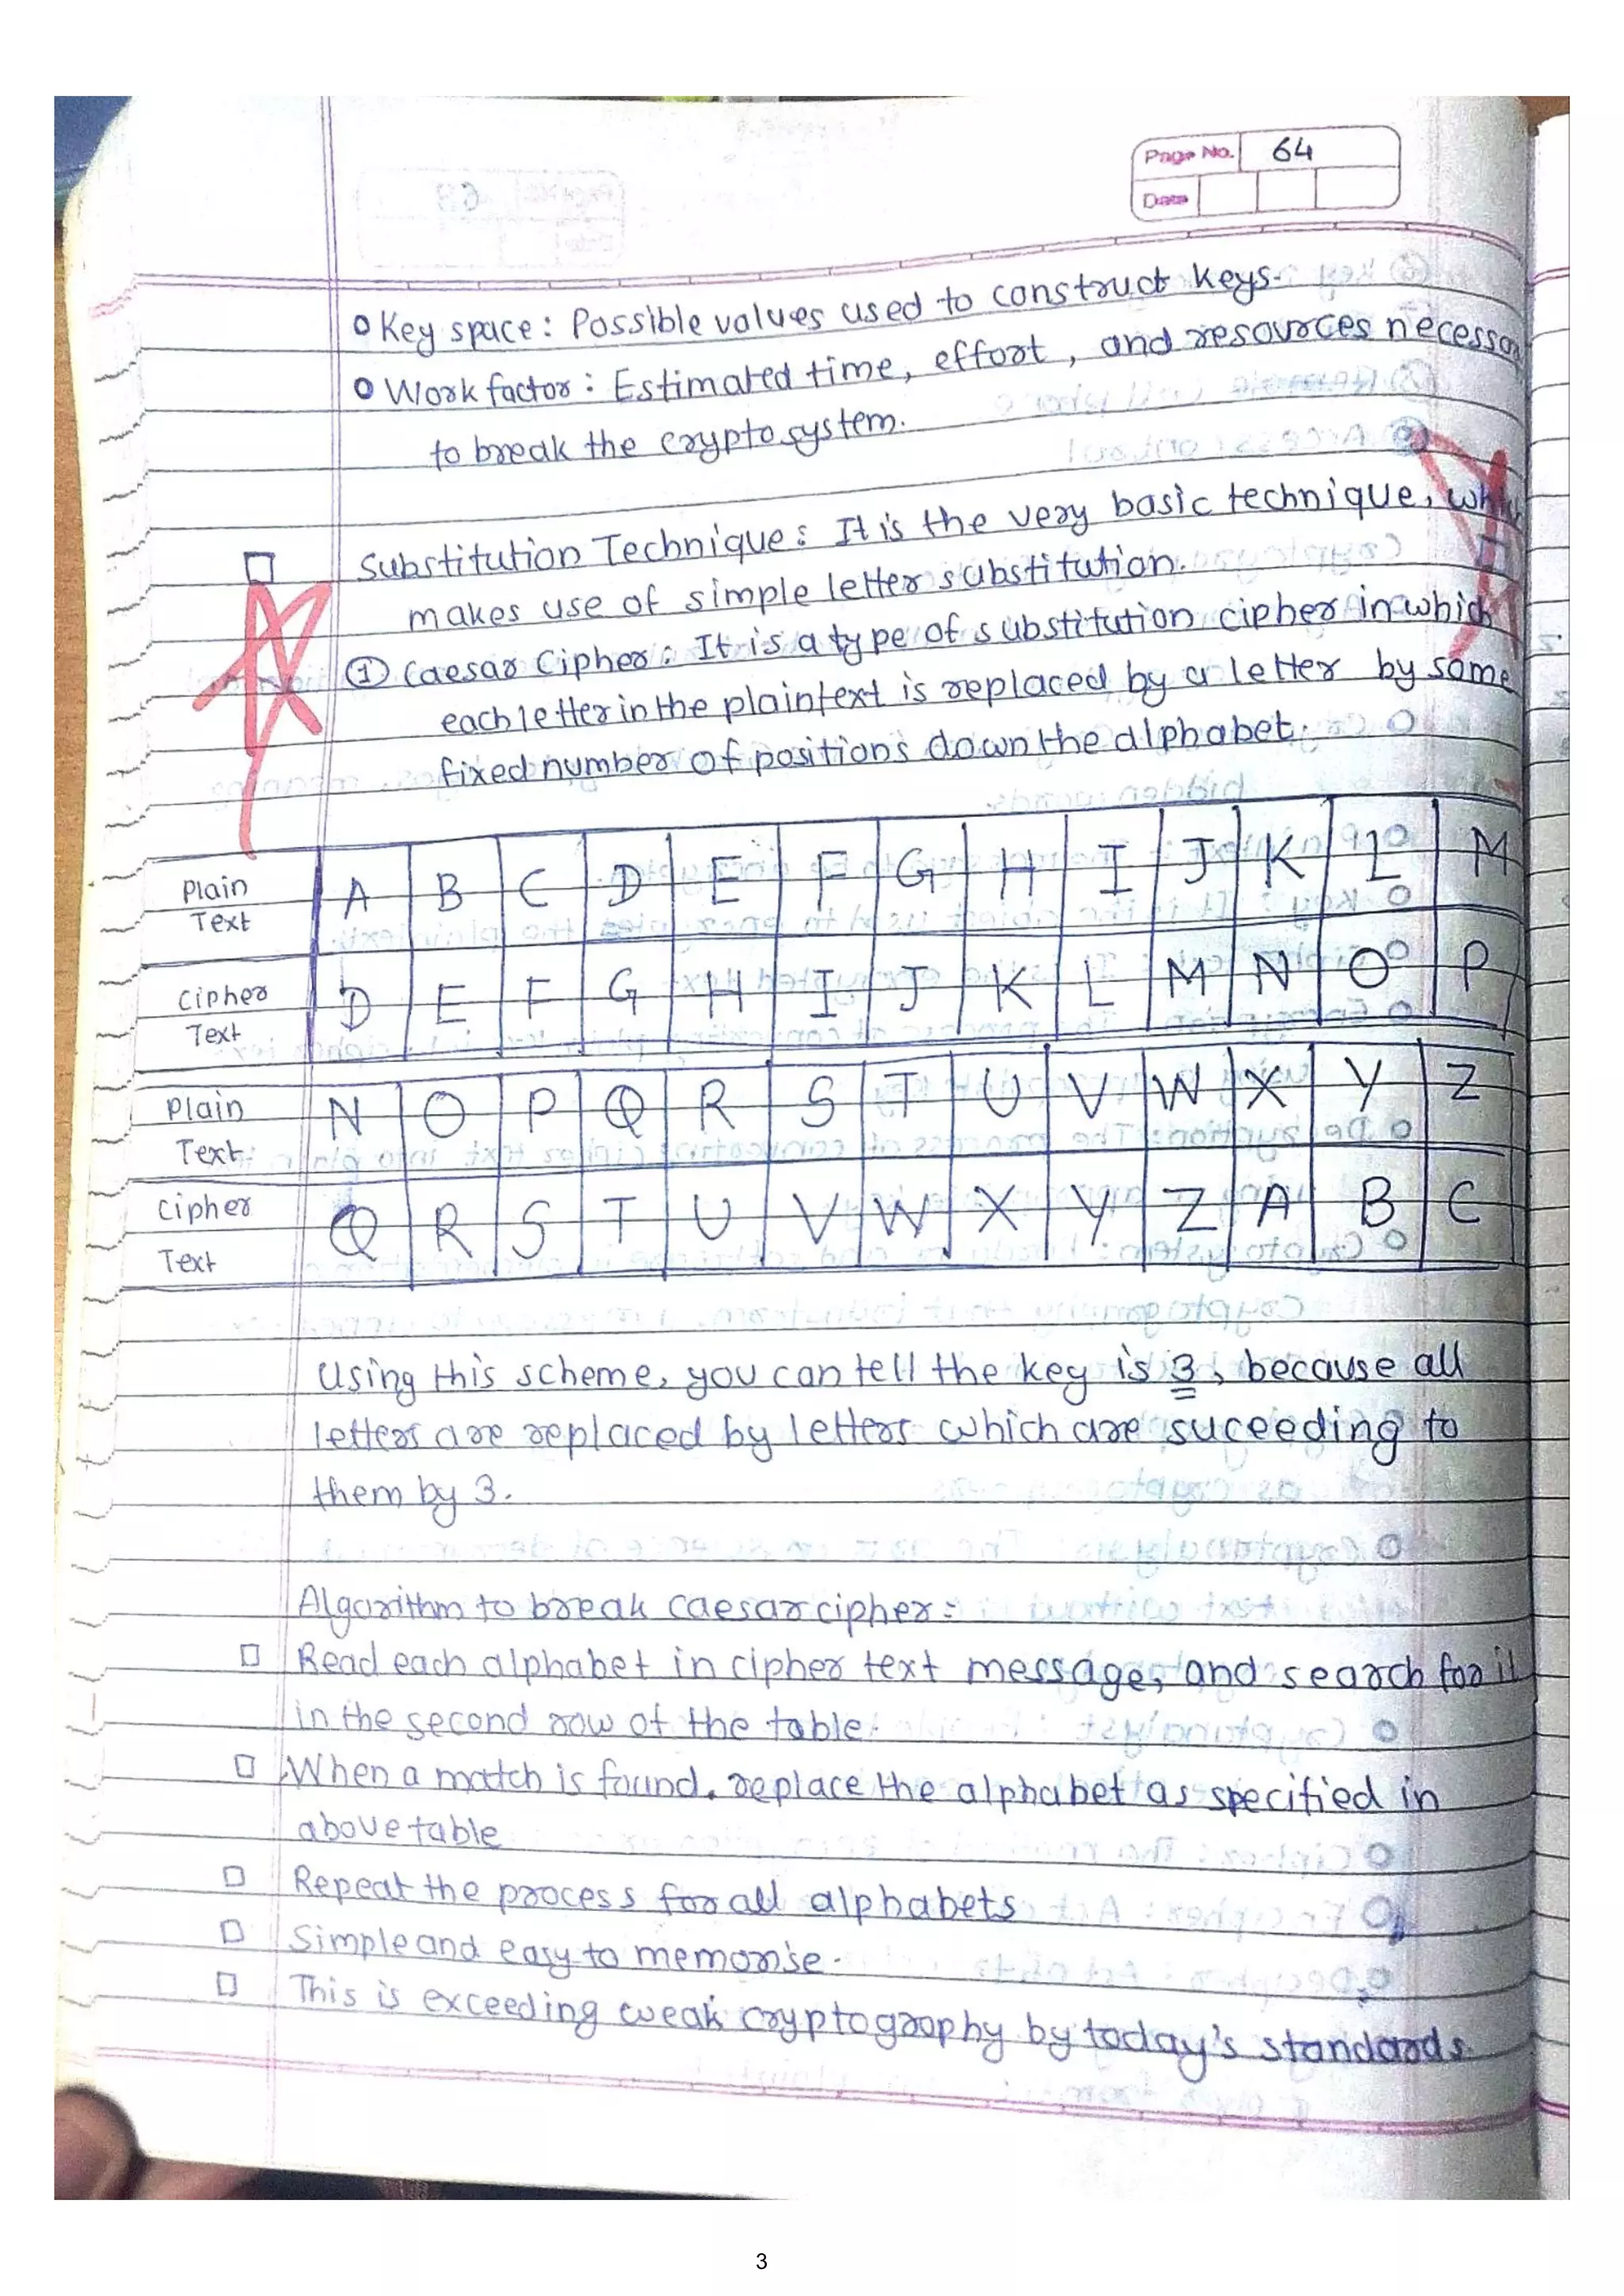 Page No. 64
Date
o Key space : Possible values used to construct keys.
o Work factor : Estimated time, effort, and resources necessar
to break the cryptosystem.
□ Substitution Technique : It is the very basic technique, whi
makes use of simple letter substitution.
① Caesar Cipher : It is a type of substitution cipher in which
each letter in the plaintext is replaced by a letter by some
fixed number of positions down the alphabet.
Plain Text A B C D E F G H I J K L M
Cipher Text D E F G H I J K L M N O P
Plain Text N O P Q R S T U V W X Y Z
Cipher Text Q R S T U V W X Y Z A B C
Using this scheme, you can tell the key is 3, because all
letters are replaced by letters which are suceeding to
them by 3.
Algorithm to break caesar cipher :
□ Read each alphabet in cipher text message, and search for it
in the second row of the table.
□ When a match is found, replace the alphabet as specified in
above table
□ Repeat the process for all alphabets
□ Simple and easy to memorise.
□ This is exceeding weak cryptography by today's standards.
3